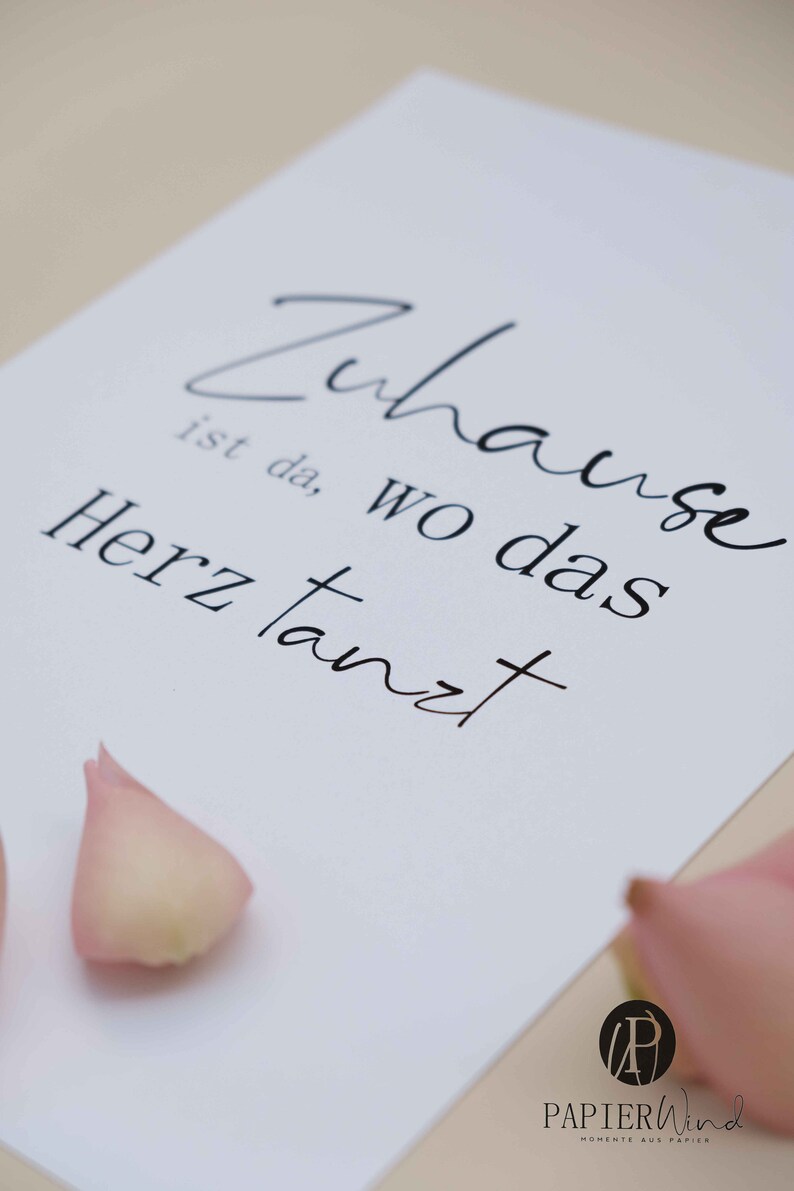 Zuhause
ist da, wo das
Herz tanzt
P
PAPIERWind
MOMENTE AUS PAPIER